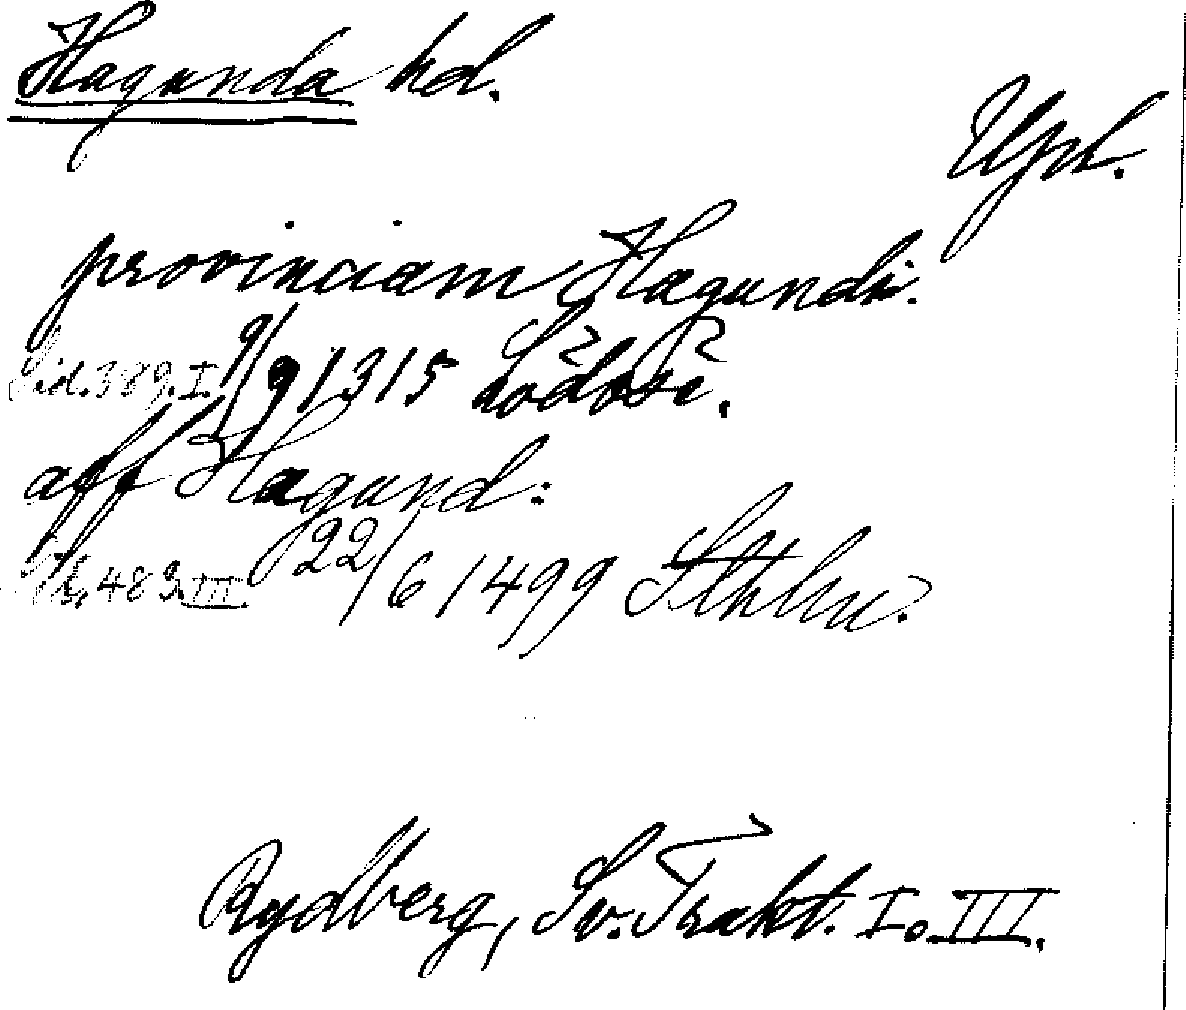 Hagunda hd.
Upl.
provinciam Hagundi.
Sid. 389. I. 9/9 1315 Lödöse.
aff Hagund:
Ib. 489. III 22/6 1499 Sthlm.
Rydberg, Sv. Trakt. I o. III.